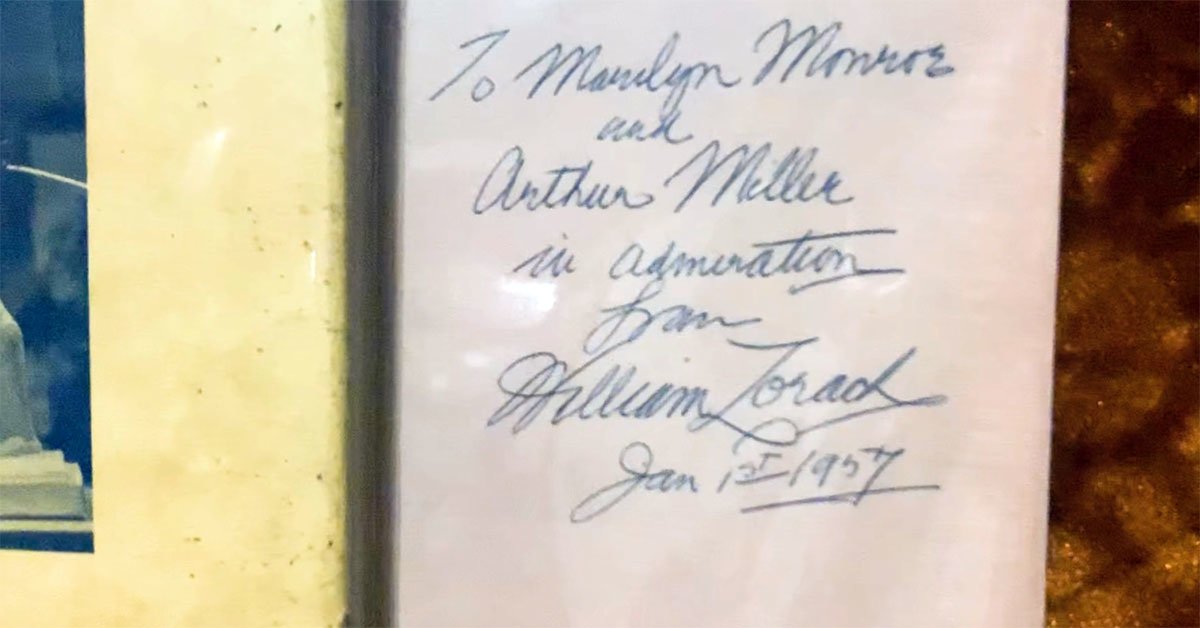 To Marilyn Monroe
and
Arthur Miller
in admiration
from
William Zorach
Jan 1st 1957